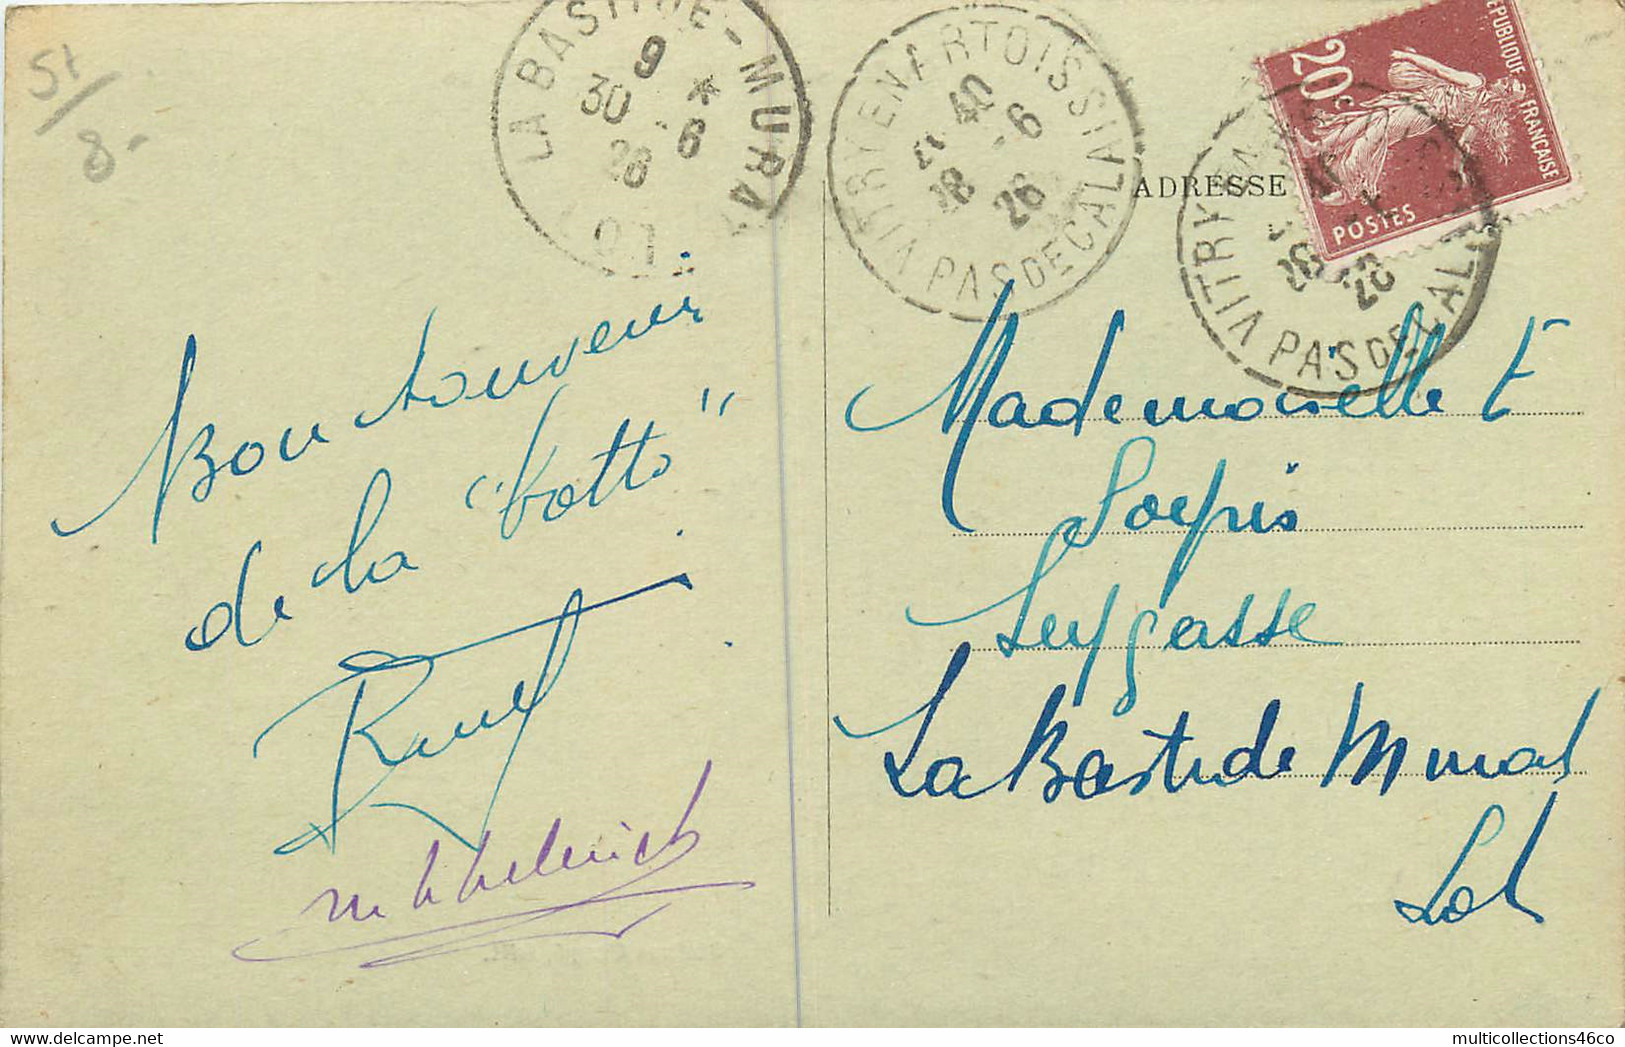 51/
8-
LA BASTIDE-MURAT
9 *
30 - 6
26
LOT
VITRY EN ARTOIS
40
18 - 6
26
PAS DE CALAIS
RÉPUBLIQUE FRANÇAISE
20c
POSTES
VITRY
PAS DE CALAIS
ADRESSE
Bon souvenir
de la "
Mademoiselle E
Leygasse
La Bastide Murat
Lot
https://www.delcampe.net
multicollections46co